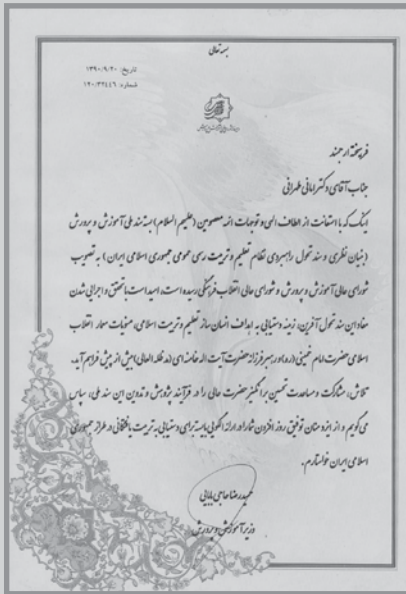 بسمه تعالی
تاریخ: ۱۳۹۰/۹/۲۰
شماره: ۱۲۰/۳۲۴۴۶
فرهیخته ارجمند
جناب آقای دکتر امانی طهرانی
اینک که با استعانت از الطاف الهی و توجهات ائمه معصومین (علیهم السلام) اسناد ملی آموزش و پرورش
(بنیان نظری و سند تحول راهبردی نظام تعلیم و تربیت رسمی عمومی جمهوری اسلامی ایران) به تصویب
شورای عالی آموزش و پرورش و شورای عالی انقلاب فرهنگی رسیده است، امید است با تحقق و اجرایی شدن
مفاد این سند تحول آفرین، زمینه دستیابی به اهداف انسان ساز تعلیم و تربیت اسلامی، منویات معمار انقلاب
اسلامی حضرت امام خمینی (ره) و رهبر فرزانه حضرت آیت اله خامنه ای (مد ظله العالی) بیش از پیش فراهم آید.
تلاش، مشارکت و مساعدت تحسین برانگیز حضرت عالی را در فرآیند پژوهش و تدوین این سند ملی، سپاس
می گویم و از ایزد منان توفیق روز افزون شما را در ارائه الگویی بایسته برای دستیابی به تربیت یافتگانی در طراز جمهوری
اسلامی ایران خواستارم.
حمیدرضا حاجی بابایی
وزیر آموزش و پرورش